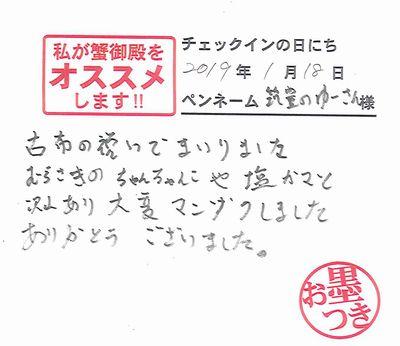 私が蟹御殿を
オススメ
します!!
チェックインの日にち
2019年1月18日
ペンネーム 筑豊のゆーさん様
古希の祝いでまいりました
むらさきのちゃんちゃんこや塩ガマと
沢山あり大変マンゾクしました
ありがとうございました。
お墨
つき